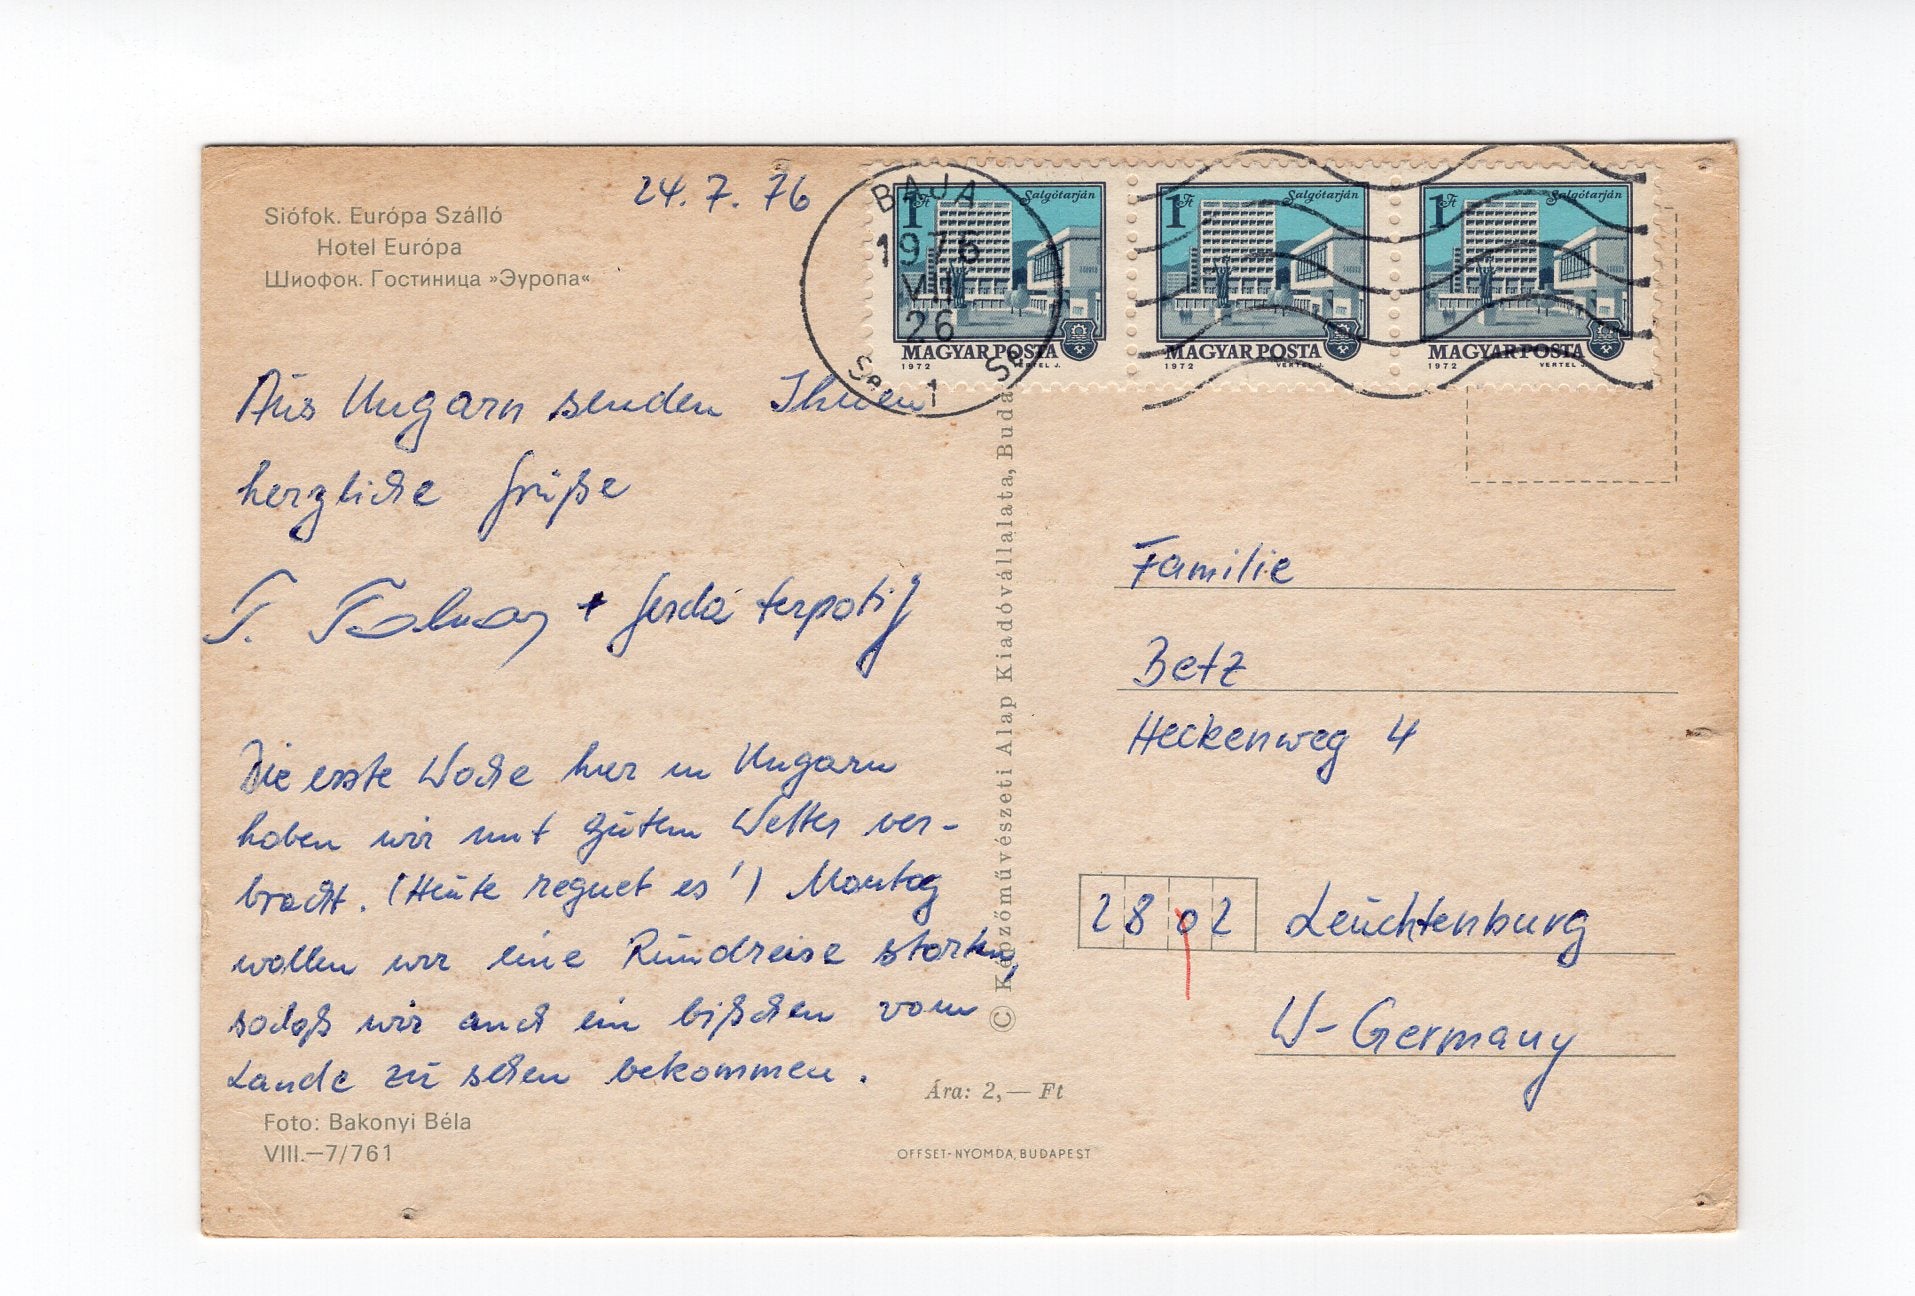 Siófok. Európa Szálló
Hotel Európa
Шиофок. Гостиница »Эуропа«
24. 7. 76
BAJA
1976
VII
26
1
1 Ft Salgótarján
MAGYAR POSTA
1972 VERTEL J.
1 Ft Salgótarján
MAGYAR POSTA
1972 VERTEL J.
1 Ft Salgótarján
MAGYAR POSTA
1972 VERTEL J.
Aus Ungarn senden Ihnen
herzliche Grüße
T. + Gerda
Die erste Woche hier in Ungarn
haben wir mit gutem Wetter ver-
bracht. (Heute regnet es!) Montag
wollen wir eine Rundreise starten,
sodaß wir auch ein bißchen vom
Lande zu sehen bekommen.
Foto: Bakonyi Béla
VIII.—7/761
© Képzőművészeti Alap Kiadóvállalata, Buda
Ára: 2,— Ft
OFFSET-NYOMDA, BUDAPEST
Familie
Betz
Heckenweg 4
2802 Leuchtenburg
W-Germany